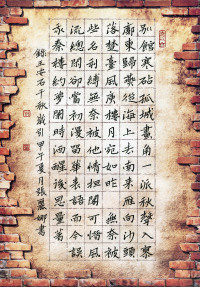 別館寒砧孤城畫角一派秋聲入寥
廓東歸燕從海上去南來雁向沙頭
落楚臺風庾樓月宛如昨無奈被
些名利縛無奈被他情担閣可惜風
流總閒却當初漫留華表語而今誤
我秦樓約夢闌時酒醒後思量着
錄王安石千秋歲引甲午夏月張麗娜書